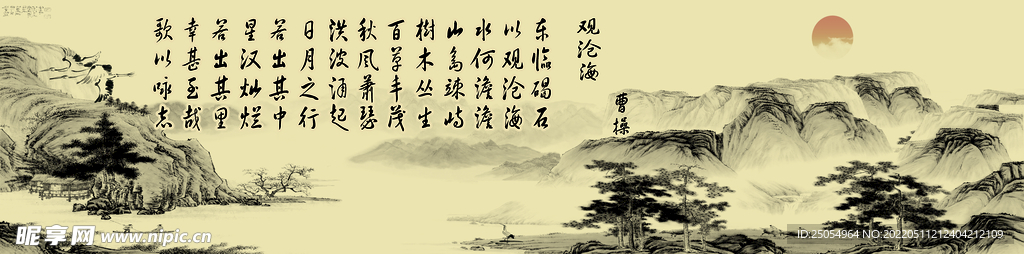 观沧海
曹操
东临碣石
以观沧海
水何澹澹
山岛竦峙
树木丛生
百草丰茂
秋风萧瑟
洪波涌起
日月之行
若出其中
星汉灿烂
若出其里
幸甚至哉
歌以咏志
昵享网 www.nipic.cn
ID:25054964 NO:20220511212404212109